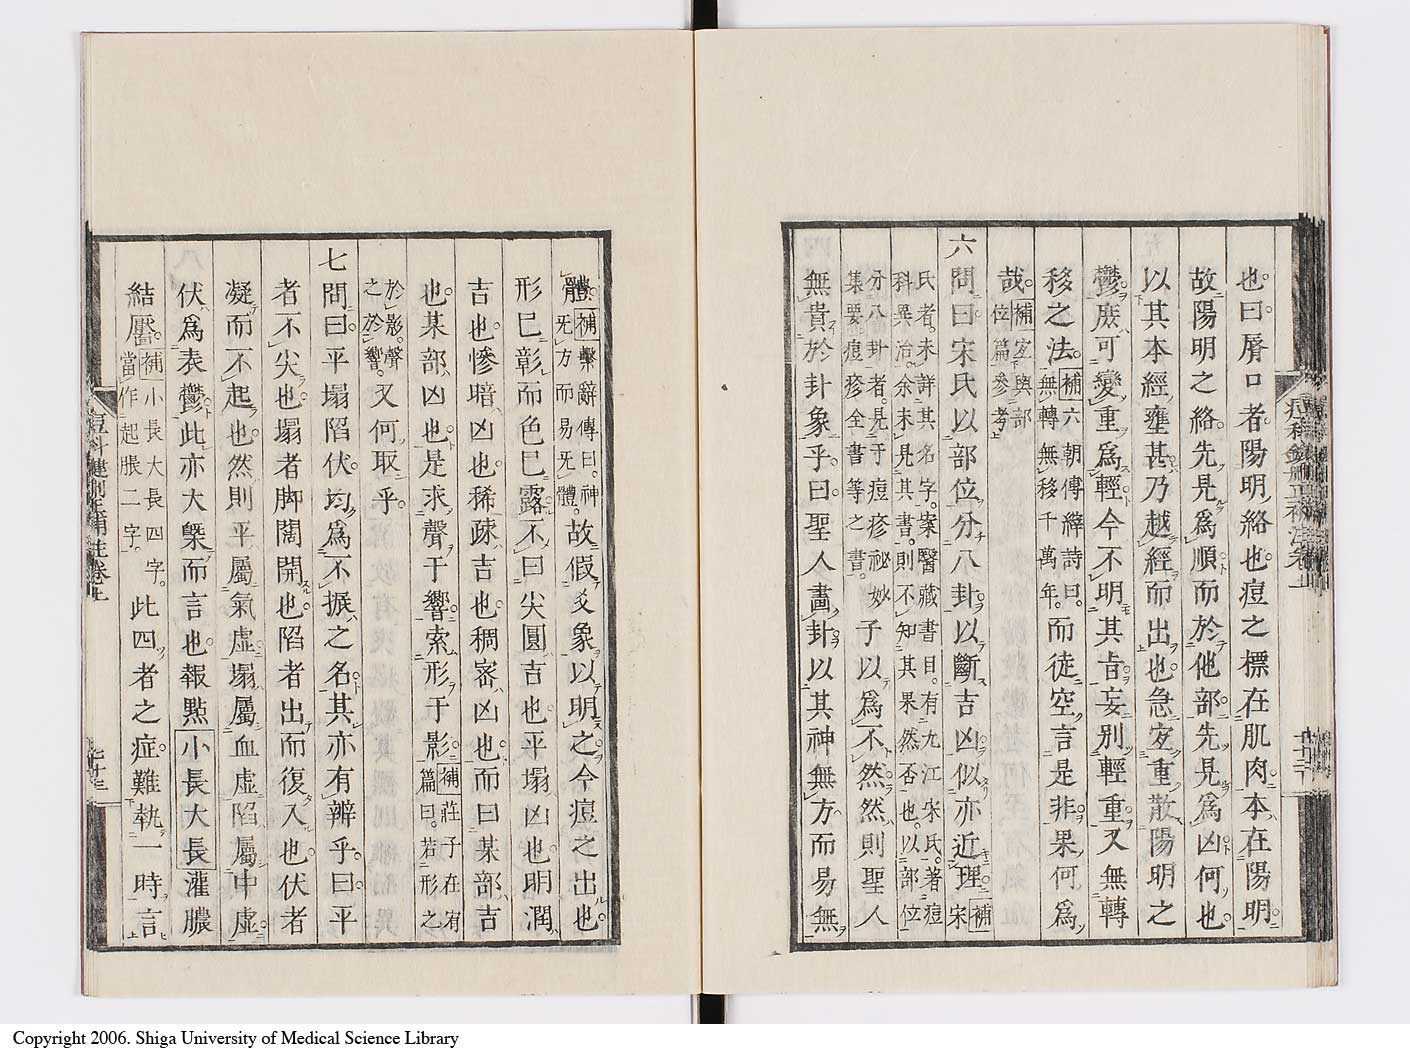 也曰脣口者陽明絡也痘之標在肌肉本在陽明
故陽明之絡先見爲順而於他部先見爲凶何也
以其本經壅甚乃越經而出也急宜重散陽明之
鬱庶可變重爲輕今不明其㫖妄別輕重又無轉
移之法。補六朝傳縡詩曰。無轉無移千萬年。而徒空言是非果何爲
哉。補宜與部位篇參考
六問曰宋氏以部位分八卦以斷吉凶似亦近理補宋
氏者。未詳其名字。案醫藏書目。有九江宋氏。著痘
科異治。余未見其書。則不知其果然否也。以部位
分八卦者。見于痘疹祕妙
集要。痘疹全書等之書。子以爲不然然則聖人
無貴於卦象乎。曰聖人畫卦以其神無方而易無
體。補繫辭傳曰。神无方而易无體。故假爻象以明之今痘之出也
形已彰而色已露不曰尖圓吉也平塌凶也明潤
吉也慘暗凶也稀疎吉也稠密凶也而曰某部吉
也某部凶也是求聲于響索形于影補莊子在宥篇曰。若形之
於影。聲之於響。又何取乎。
七問曰平塌陷伏均爲不振之名其亦有辨乎。曰平
者不尖也塌者脚闊開也陷者出而復入也伏者
凝而不起也然則平屬氣虛塌屬血虛陷屬中虛
伏爲表鬱此亦大槩而言也報點小長大長灌膿
結靨。補小長大長四字。當作起脹二字。此四者之症難執一時言
痘科鍵刪正補注卷上
七十三
Copyright 2006. Shiga University of Medical Science Library